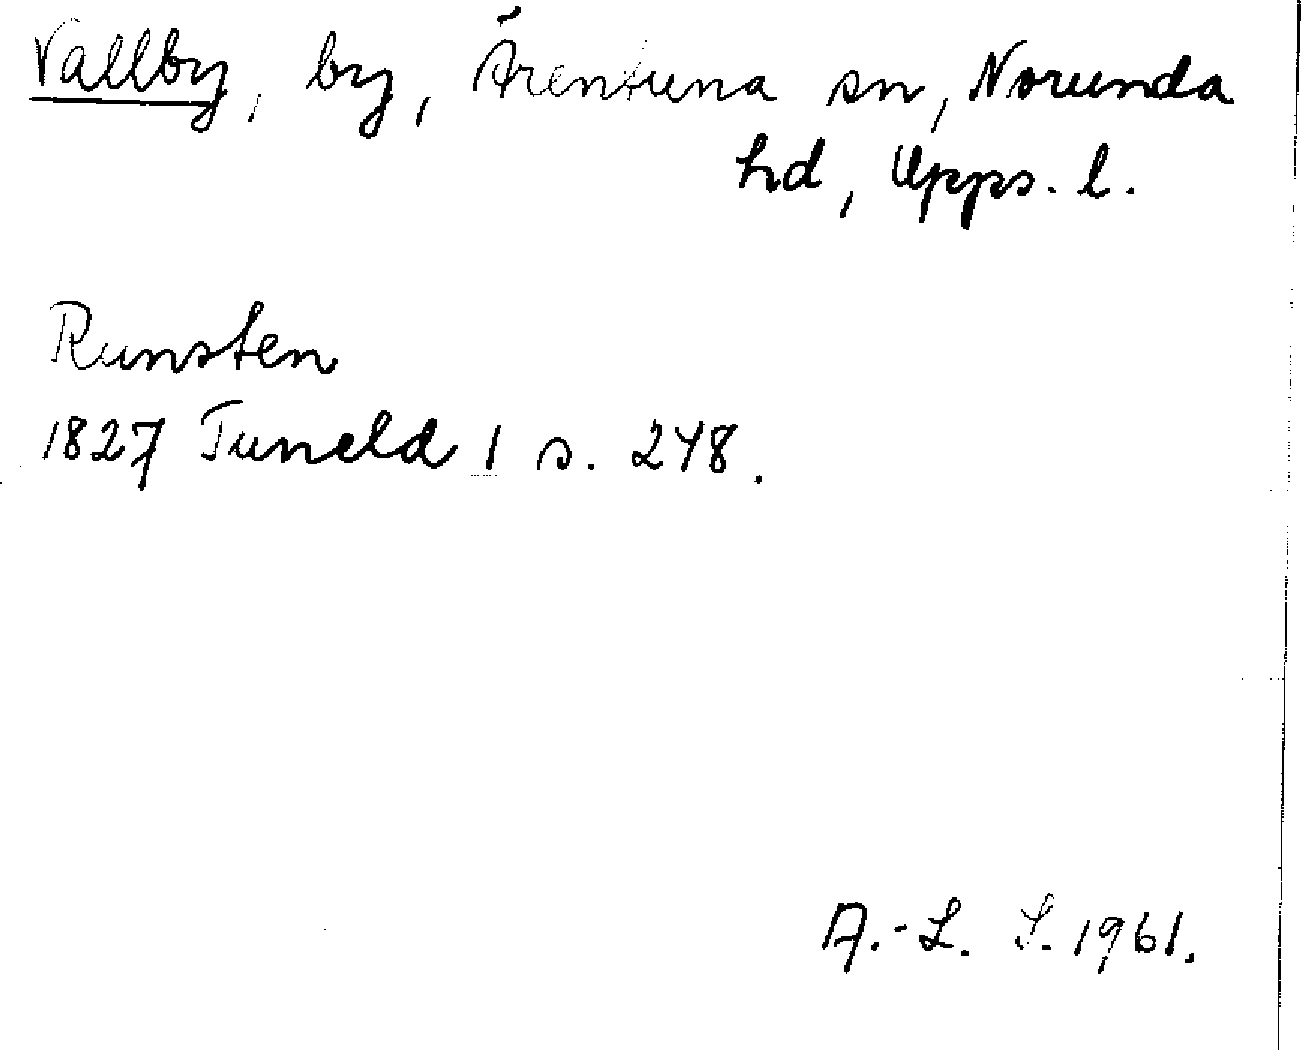 Vallby, by, Ärentuna sn, Norunda
hd, Upps. l.
Runsten
1827 Tuneld 1 s. 248.
A.-L. S. 1961.